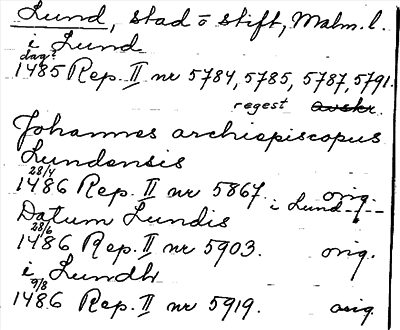 Lund, stad o stift, Malm. l.
i Lund
dag?
1485 Rep. II nr 5784, 5785, 5787, 5791.
regest avskr.
Johannes archiepiscopus
Lundensis
28/4
1486 Rep. II nr 5867. orig.
i Lund---
Datum Lundis
28/6
1486 Rep. II nr 5903. orig.
i Lundh
9/8
1486 Rep. II nr 5919. orig.